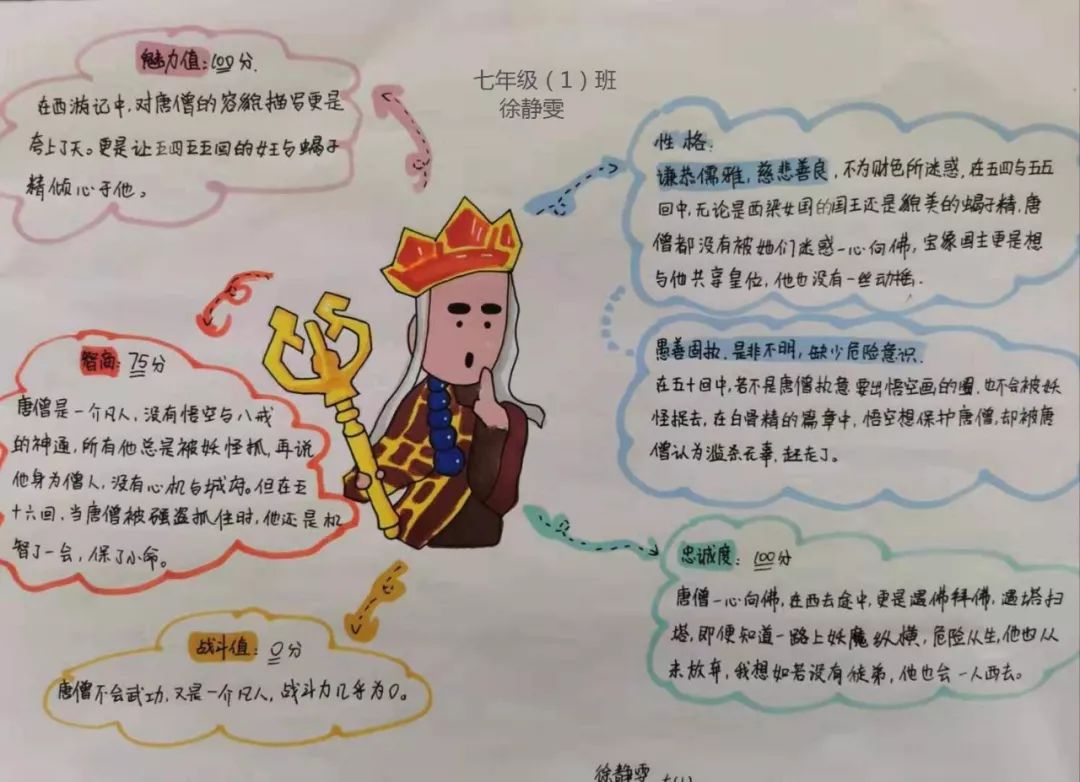 魅力值:100分.
在西游记中,对唐僧的容貌描写更是
夸上了天。更是让五四五五回的女王与蝎子
精倾心于他。
七年级(1)班
徐静雯
性格:
谦恭儒雅,慈悲善良,不为财色所迷惑,在五四与五五
回中,无论是西梁女国的国王还是貌美的蝎子精,唐
僧都没有被她们迷惑一心向佛,宝象国主更是想
与他共享皇位,他也没有一丝动摇.
愚善固执.是非不明,缺少危险意识.
在五十回中,若不是唐僧执意要出悟空画的圈,也不会被妖
怪捉去,在白骨精的篇章中,悟空想保护唐僧,却被唐
僧认为滥杀无辜,赶走了。
智商:75分
唐僧是一个凡人,没有悟空与八戒
的神通,所有他总是被妖怪抓,再说
他身为僧人,没有心机与城府。但在五
十六回,当唐僧被强盗抓住时,他还是机
智了一会,保了小命。
忠诚度:100分
唐僧一心向佛,在西去途中,更是遇佛拜佛,遇塔扫
塔,即便知道一路上妖魔纵横,危险从生,他也从
未放弃,我想如若没有徒弟,他也会一人西去。
战斗值:0分
唐僧不会武功,又是一个凡人,战斗力几乎为0。
徐静雯